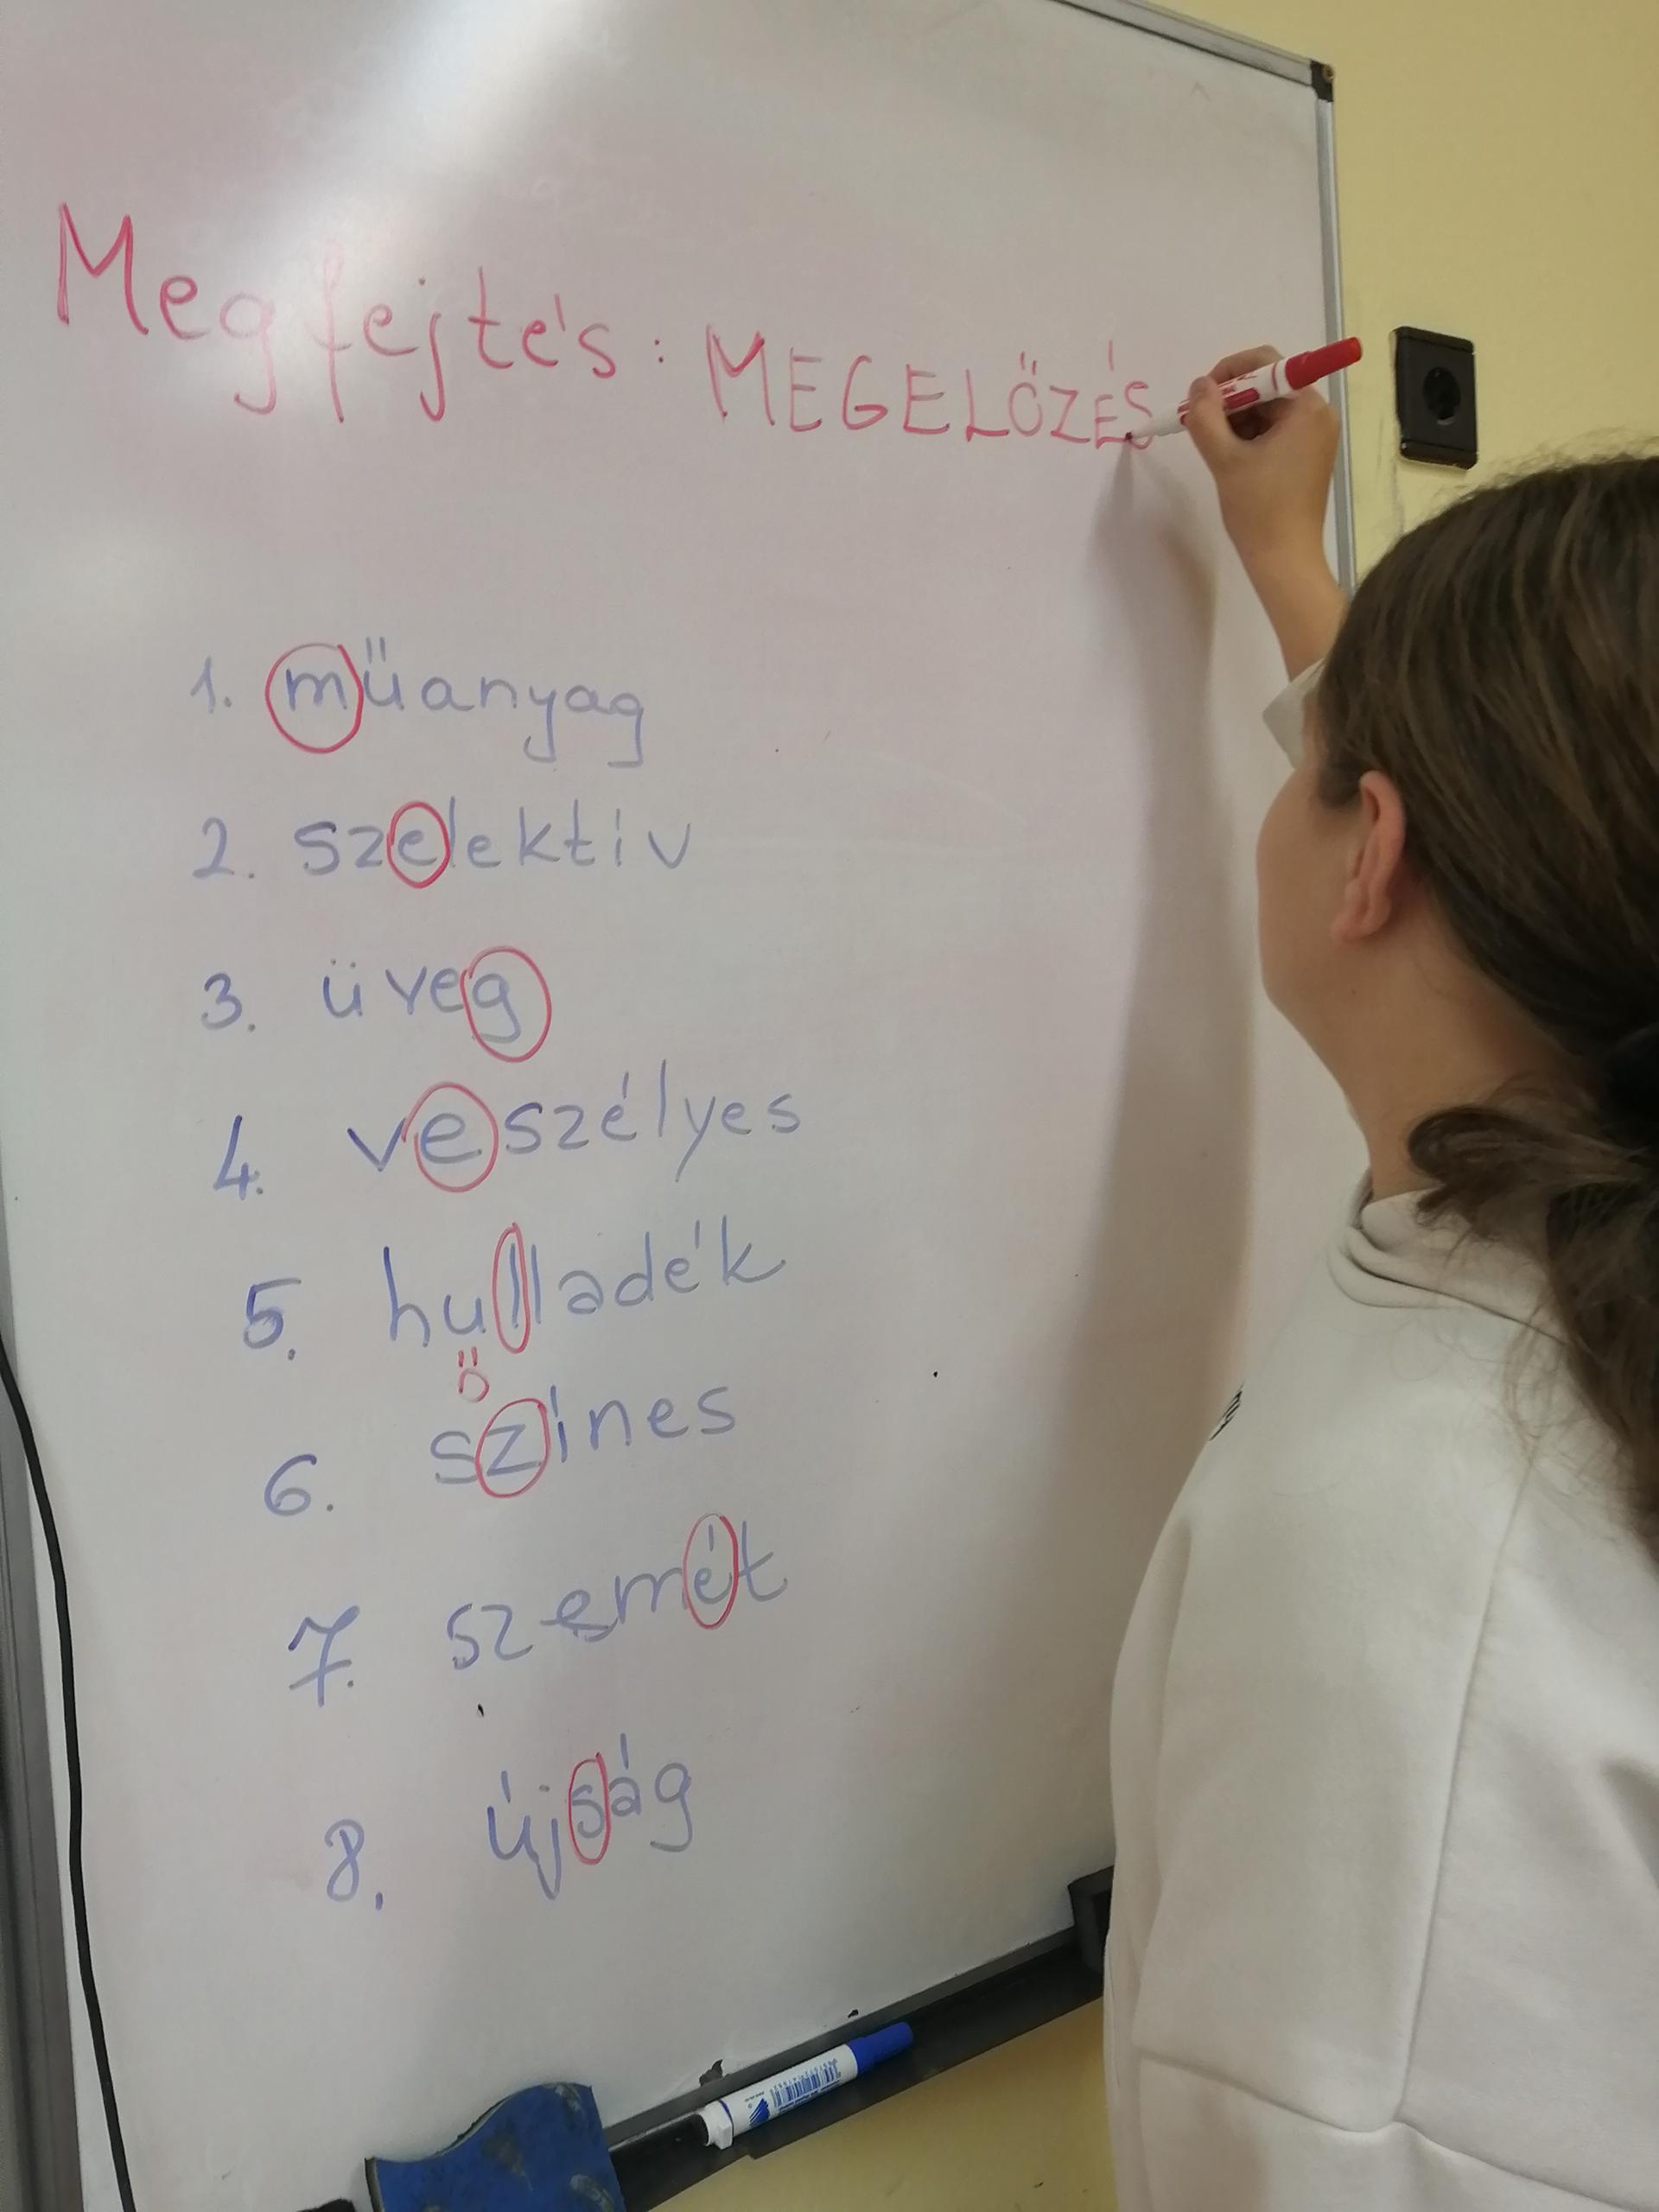 Megfejtés: MEGELŐZÉS
1. műanyag
2. szelektiv
3. üveg
4. veszélyes
5. hulladék
ő
6. szines
7. szemét
8. újság